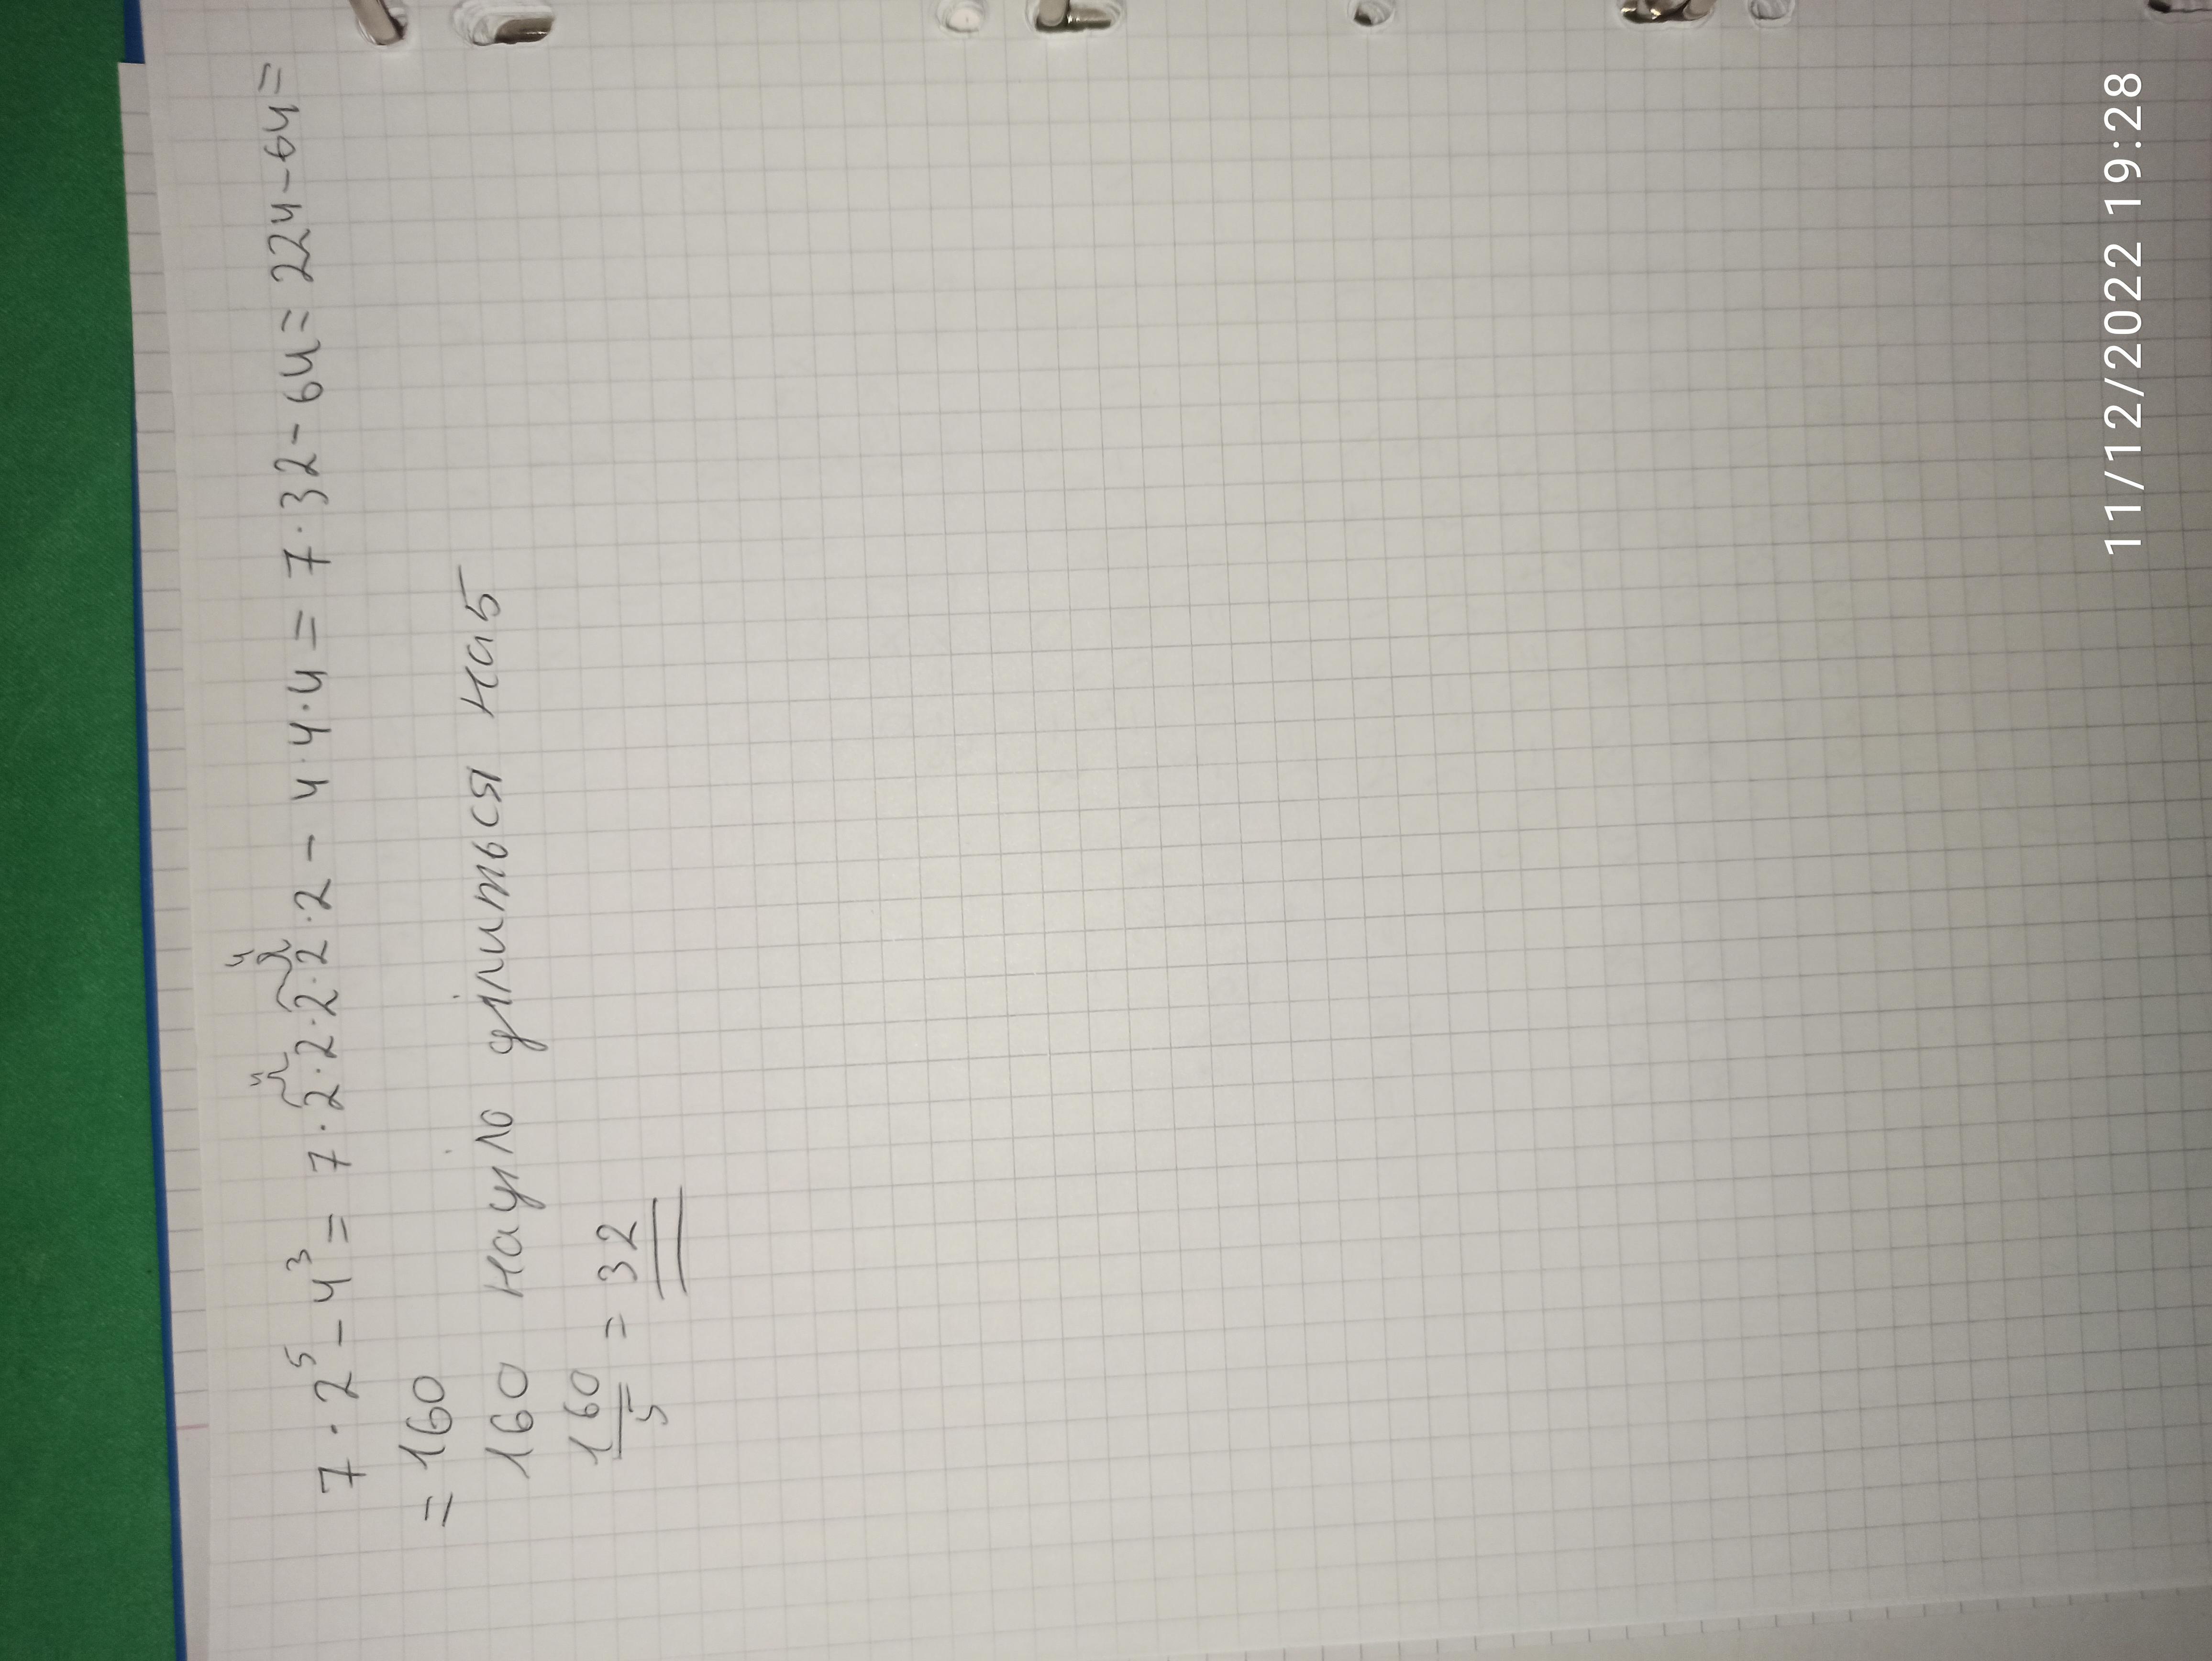 7 · 2⁵ - 4³ = 7 · 2 · 2 · 2 · 2 · 2 - 4 · 4 · 4 = 7 · 32 - 64 = 224 - 64 =
4 4
= 160
160 націло ділиться на 5
160/5 = 32
11/12/2022 19:28